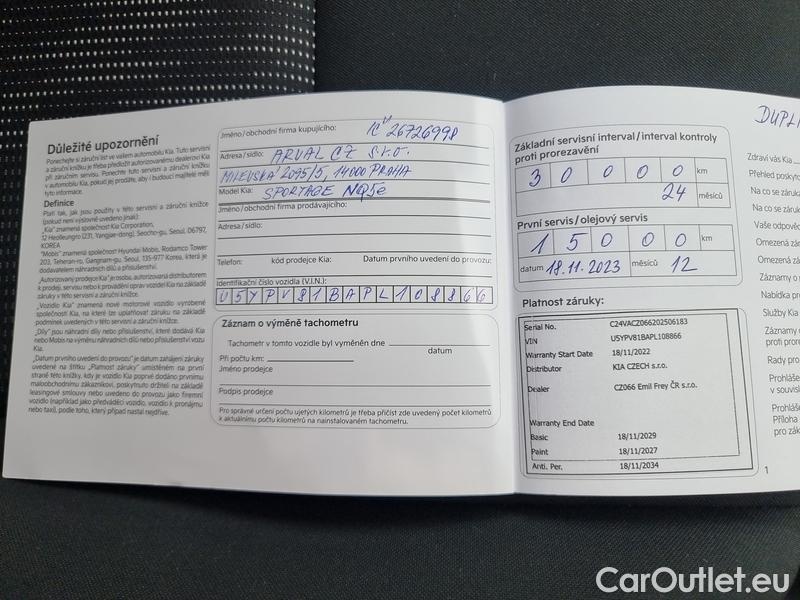 Důležité upozornění
Ponechejte si záruční list ve vašem automobilu Kia. Tuto servisní
a záruční knížku je třeba předložit autorizovanému dealerovi Kia
při záručním servisu. Ponechte tuto servisní a záruční knížku
v automobilu Kia, pokud jej prodáte, aby i budoucí majitelé měli
tyto informace.
Definice
Platí tak, jak jsou použity v této servisní a záruční knížce
(pokud není výslovně uvedeno jinak):
„Kia" znamená společnost Kia Corporation,
12 Heolleungro (231, Yangjae-dong), Seocho-gu, Seoul, 06797,
KOREA
"Mobis" znamená společnost Hyundai Mobis, Rodamco Tower
203, Teheran-ro, Gangnam-gu, Seoul, 135-977 Korea, která je
dodavatelem náhradních dílů a příslušenství.
„Autorizovaný prodejce Kia" je osoba, autorizovaná distributorem
k prodeji, servisu nebo k provádění oprav vozidel Kia na základě
záruky v této servisní a záruční knížce.
„Vozidlo Kia" znamená nové motorové vozidlo vyrobené
společností Kia, na které lze uplatňovat záruku na základě
podmínek uvedených v této servisní a záruční knížce.
„Díly" jsou náhradní díly nebo příslušenství, které dodává Kia
nebo Mobis na výměnu náhradních dílů nebo příslušenství vozu
Kia.
„Datum prvního uvedení do provozu" je datum zahájení záruky
uvedené na štítku „Platnost záruky" umístěném na první
straně této knížky, kdy je vozidlo Kia poprvé dodáno prvnímu
maloobchodnímu zákazníkovi, poskytnuto držiteli na základě
leasingové smlouvy nebo uvedeno do provozu jako firemní
vozidlo (například jako předváděcí vozidlo, vozidlo k pronájmu
nebo taxi), podle toho, který případ nastal nejdříve.
Jméno/obchodní firma kupujícího: IČ 26726998
Adresa/sídlo: ARVAL CZ s.r.o.
MILEVSKÁ 2095/5, 14000 PRAHA
Model Kia: SPORTAGE NQ5e
Jméno/obchodní firma prodávajícího:
Adresa/sídlo:
Telefon: kód prodejce Kia: Datum prvního uvedení do provozu:
Identifikační číslo vozidla (V.I.N.):
U5YPV81BAPL108866
Záznam o výměně tachometru
Tachometr v tomto vozidle byl vyměněn dne
datum
Při počtu km:
Jméno prodejce
Podpis prodejce
Pro správné určení počtu ujetých kilometrů je třeba přičíst zde uvedený počet kilometrů
k aktuálnímu počtu kilometrů na nainstalovaném tachometru.
Základní servisní interval/interval kontroly
proti prorezavění
30000 km
24 měsíců
První servis/olejový servis
15000 km
datum 18.11.2023 měsíců 12
Platnost záruky:
Serial No. C24VACZ066202506183
VIN U5YPV81BAPL108866
Warranty Start Date 18/11/2022
Distributor KIA CZECH s.r.o.
Dealer CZ066 Emil Frey ČR s.r.o.
Warranty End Date
Basic 18/11/2029
Paint 18/11/2027
Anti. Per. 18/11/2034
DUPLI
Zdraví vás Kia
Přehled poskyto
Na co se záruka
Na co se záruka
Vaše odpově
Omezená zá
Omezená zá
Záznamy o
Nabídka pr
Služby Kia
Záznamy
proti prore
Rady pro
Prohláše
v souvisl
Prohláše
Příloha
pro zák
1
CarOutlet.eu